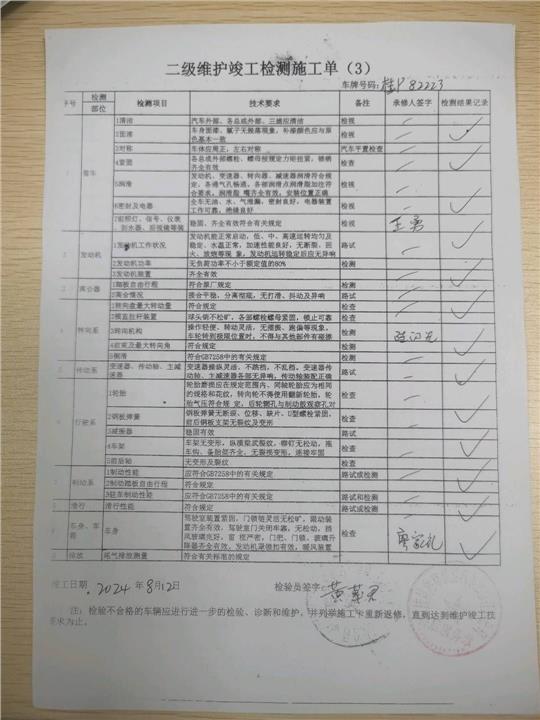 二级维护竣工检测施工单（3）
车牌号码：桂P82223
序号 检测部位 检测项目 技术要求 备注 承修人签字 检测结果记录
整车
1清洁 汽车外部、各总成外部、三滤应清洁 检视
2面漆 车身面漆、腻子无脱落现象，补漆颜色应与原色基本一致 检视
3对称 车体应周正，左右对称 汽车平置检查
4紧固 各总成外部螺栓、螺母按规定力矩扭紧，锁销齐全有效 检查
5润滑 发动机、变速器、转向器、减速器润滑符合规定，各通气孔畅通，各部润滑点润滑脂加注符合要求，润滑脂嘴齐全有效，安装位置正确 检视
6密封及电器 全车无油、水、气泄漏，密封良好，电器装置工作可靠，绝缘良好 检视
7前照灯、信号、仪表、刮水器、后视镜等装 稳固、齐全有效符合有关规定 检视 王勇
发动机
1发动机工作状况 发动机能正常启动，低、中、高速运转均匀及稳定、水温正常，加速性能良好，无断裂、回火、放炮等现象，发动机运转稳定后应无异响 路试
2发动机功率 无负荷功率不小于额定值的80% 检测
3发动机装置 齐全有效
离合器
1踏板自由行程 符合原厂规定 检测
2离合情况 接合平稳，分离彻底，无打滑、抖动及异响 路试
转向系
1转向盘最大转动量 符合规定 检查
2横直拉杆装置 球头销不松旷，各部螺栓螺母紧固，锁止可靠 检查
3转向机构 操作轻便、转动灵活，无摆振、跑偏等现象，车轮转到极限位置时，不得与其他部件有碰擦 检测
4前束及最大转向角 符合规定 检测
5侧滑 符合GB7258中的有关规定 检测
传动系
变速器、传动轴、主减速器 变速器操纵灵活，不跳档，不乱档，变速器传动轴、主减速器各部无异响，传动轴装配正确 路试
行驶系
1轮胎 轮胎磨损应在规定范围内，同轴轮胎应为相同的规格和花纹，转向轮不得使用翻新轮胎，轮胎气压符合规定，后轮辋孔与制动鼓观察孔对 检查
2钢板弹簧 钢板弹簧无断裂、位移、缺片，U型螺栓紧固，前后钢板支架无裂纹及变形 检查
3减振器 稳固有效 路试
4车架 车架无变形，纵横梁武裂纹，铆钉无松动，拖车钩、备胎架齐全，无裂损变形，连接牢固 检查
5前后轴 无变形及裂纹 检查
制动系
1制动性能 应符合GB7258中的有关规定 路试或检测
2制动踏板自由行程 符合规定 检测
3驻车制动性能 应符合GB7258中的有关规定 路试和检测
滑行 滑行性能 符合规定 路试或检测
车身、车箱 车身 驾驶室装置紧固，门锁链灵活无松旷，限动装置齐全有效，驾驶室门关闭牢靠，无松动，挡风玻璃完好，窗框严密，门把、门锁、玻璃升降器齐全有效，发动机罩锁扣有效，暖风装置 检查
排放 尾气排放测量 符合有关标准的规定
竣工日期：2024年8月12日 检验员签字：
注：检验不合格的车辆应进行进一步的检验、诊断和维护，并列举施工卡重新返修，直到达到维护竣工技
要求为止。